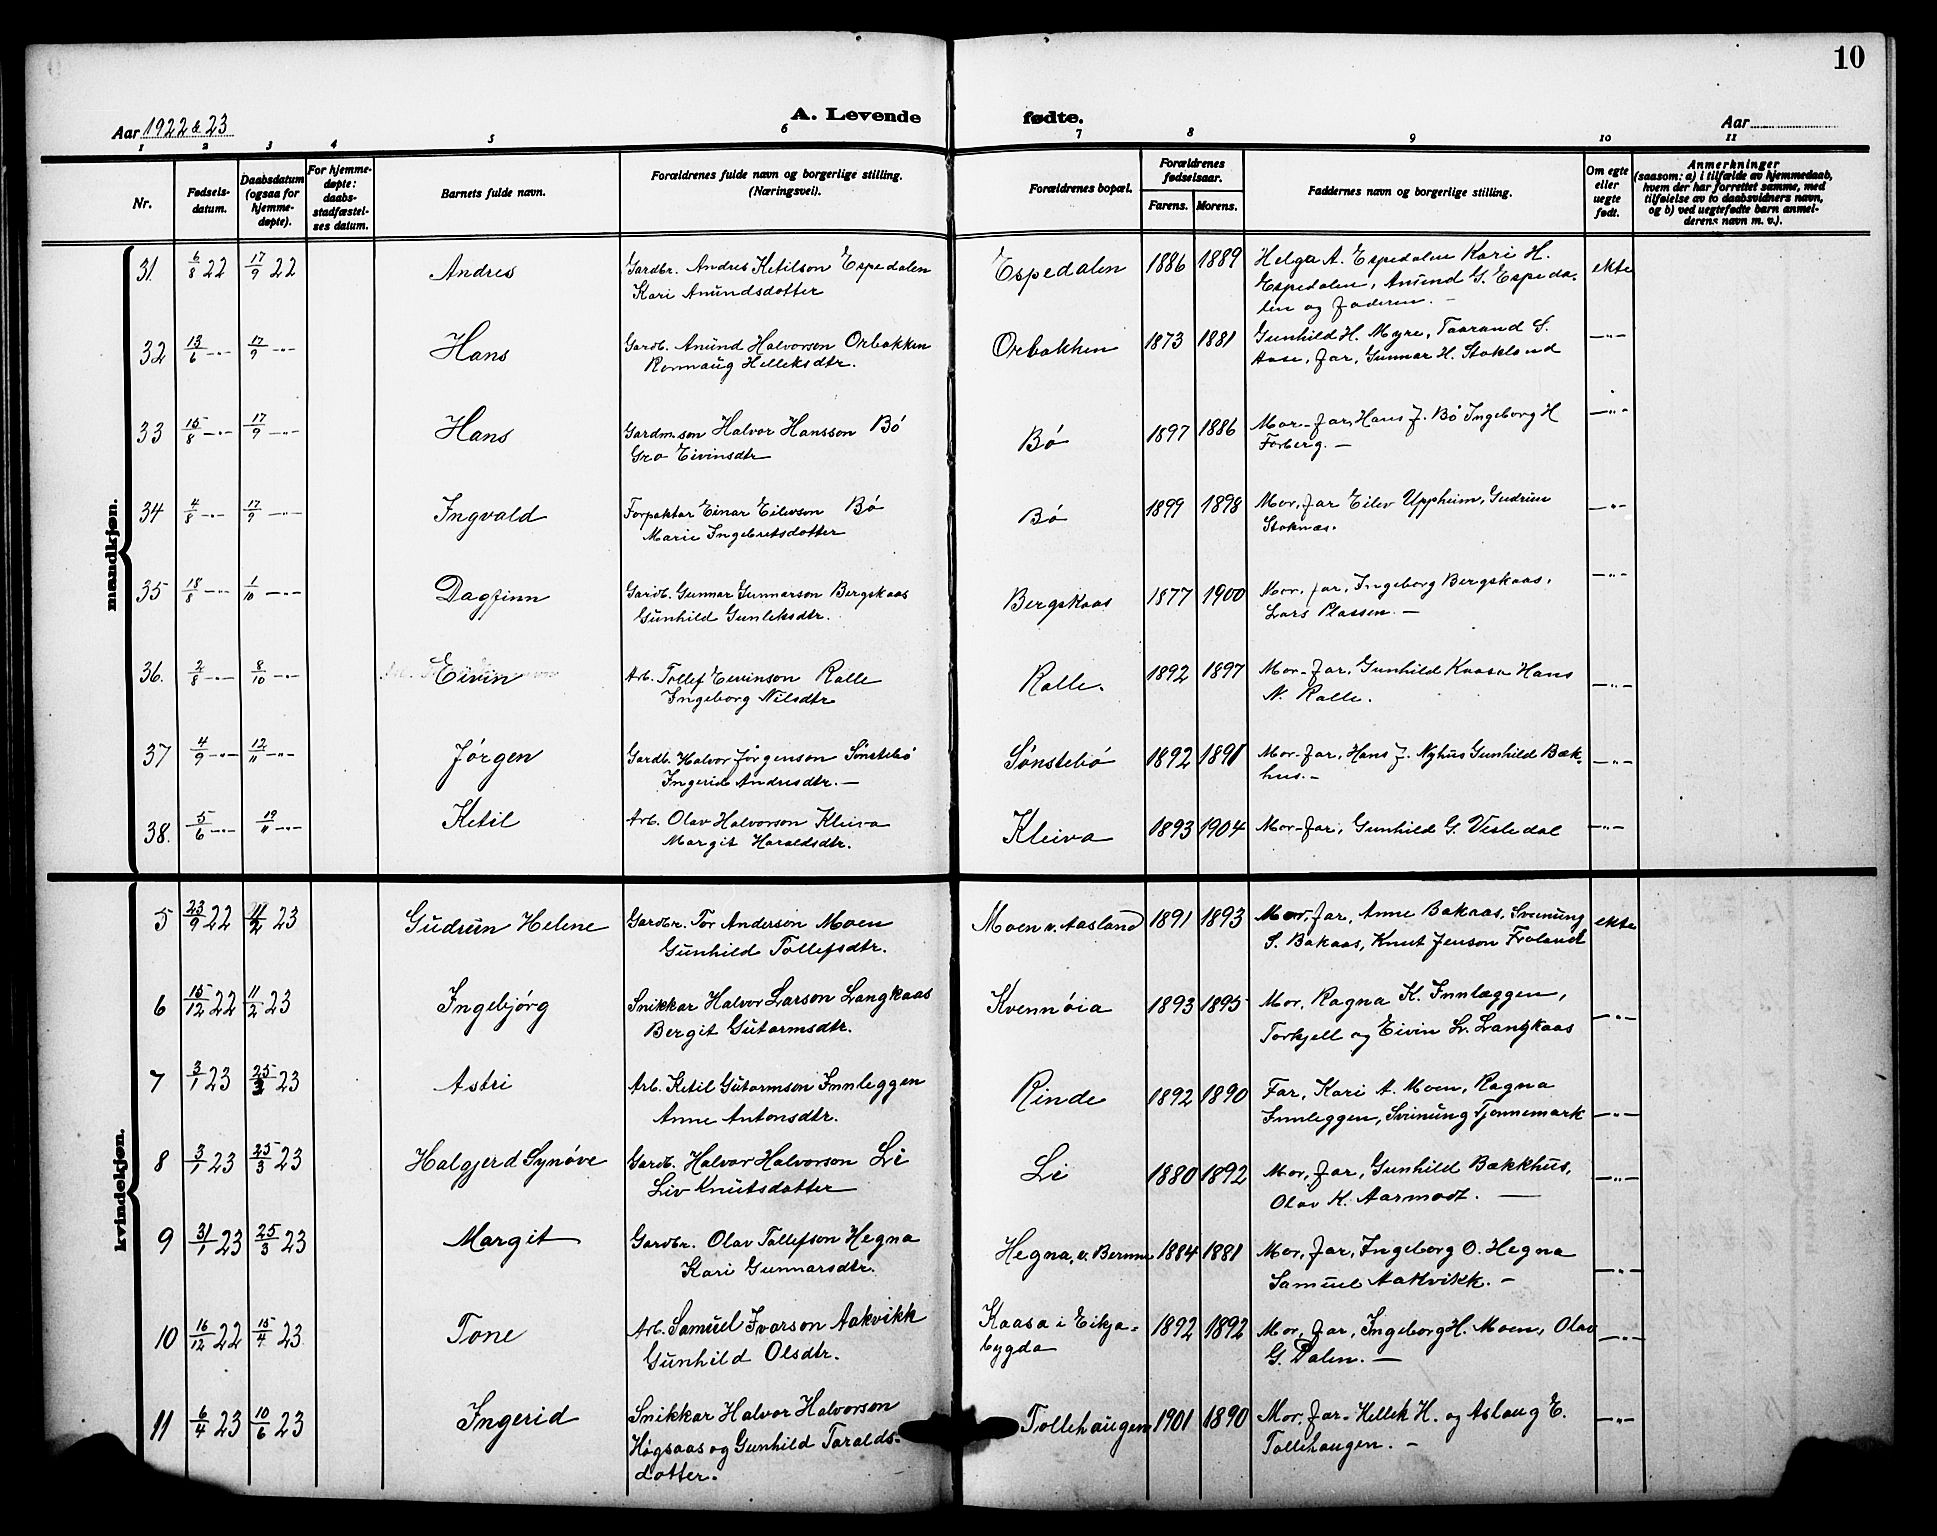 10
Aar 1922 & 23
A. Levende fødte.
Aar
1 2 3 4 5 6 7 8 9 10 11
Nr.
Fødsels-datum.
Daabsdatum (ogsaa for hjemme-døpte).
For hjemme-døpte: daabs-stadfæstel-ses datum.
Barnets fulde navn.
Forældrenes fulde navn og borgerlige stilling. (Næringsvei).
Forældrenes bopæl.
Forældrenes fødselsaar.
Farens. Morens.
Faddernes navn og borgerlige stilling.
Om egte eller uegte født.
Anmerkninger (saasom: a) i tilfælde av hjemmedaab, hvem der har forrettet samme, med tilføielse av to daabsvidners navn, og b) ved uegtefødte barn anmel-derens navn m. v.).
mandkjøn.
31 6/8 22 17/9 22 Andres Gardbr. Andres Ketilson Espedalen Espedalen 1886 1889 Helga A. Espedalen Kari H. ekte
Kari Anundsdotter Espedalen, Anund G. Espeda-
len og faderen. -
32 13/6 -"- 17/9 -"- Hans Gardb. Anund Halvorsen Orbakken Orbakken 1873 1881 Gunhild H. Myre, Taarand S. -"-
Ronnaug Helleksdtr. Aase, far, Gunnar H. Stokland
33 15/8 -"- 17/9 -"- Hans Gardm.son Halvor Hansson Bø Bø 1897 1886 Mor-far, Hans J. Bø Ingeborg H -"-
Gro Eivinsdtr Forberg. -
34 4/8 -"- 17/9 -"- Ingvald Forpaktar Einar Eilevson Bø Bø 1899 1898 Mor, far Eilev Uppheim, Gudrun -"-
Marie Ingebretsdotter Stoknæs.
35 18/8 -"- 1/10 -"- Dagfinn Gardb. Gunnar Gunnarson Bergskaas Bergskaas 1877 1900 Mor, far, Ingeborg Bergskaas, -"-
Gunhild Gunleksdtr. Lars Plassen. -
36. 2/8 -"- 8/10 -"- Eivin Arb. Tollef Eivinson Ralle Ralle. 1892 1897 Mor-far, Gunhild Kaasa Hans -"-
Ingeborg Nilsdtr N. Ralle.
37 4/9 -"- 12/11 -"- Jørgen Gardb. Halvor Jørgenson Sønstebø Sønstebø 1892 1891 Mor-far, Hans J. Nyhus Gunhild Bæk- -"-
Ingerid Andresdtr. - hus. -
38. 5/6 -"- 19/11 -"- Ketil Arb. Olav Halvorson Kleiva Kleiva 1893 1904 Mor-far, Gunhild G. Vesledal -"-
Margit Haraldsdtr.
kvindekjøn.
5 23/9 22 11/2 23 Gudrun Helene Gardbr. Tor Anderson Moen Moen v. Aasland 1891 1893 Mor, far, Anne Bakaas, Sveinung ekte
Gunhild Tollefsdtr. S. Bakaas, Knut Jenson Froland
6 15/12 22 11/2 23 Ingebjørg Snikkar Halvor Larson Langkaas Kvennøia 1893 1895 Mor, Ragna K. Innlæggen, -"-
Bergit Gutormsdtr. Torkjell og Eivin L. Langkaas
7 3/1 23 25/3 23 Astri Arb. Ketil Gutormson Innleggen Rinde 1892 1890 Far, Kari A. Moen, Ragna
Anne Antonsdtr. Innleggen, Sveinung Tjønnemark -"-
8 3/1 23 25/3 23 Halgjerd Synøve Gardb. Halvor Halvorson Li Li 1880 1892 Mor, far, Gunhild Bækkhus, -"-
Liv Knutsdotter Olav K. Aarmodt. -
9 31/1 23 25/3 23 Margit Gardbr. Olav Tollefson Hegna Hegna, v. Bernes 1884 1881 Mor, far, Ingeborg O. Hegna
Kari Gunnarsdtr. Samuel Aakvikk. - -"-
10 16/12 22 15/4 23 Tone Arb. Samuel Ivarson Aakvikk Kaasa i Eikja- 1892 1892 Mor, far, Ingeborg H. Moen, Olav -"-
Gunhild Olsdtr. bygda G. Dalen. -
11 6/4 23 10/6 23 Ingerid Snikkar Halvor Halvorson Tollehaugen 1901 1890 Mor, far- Hellek H. og Aslaug E. -"-
Høgsaas og Gunhild Taralds- Tollehaugen. -
dotter.